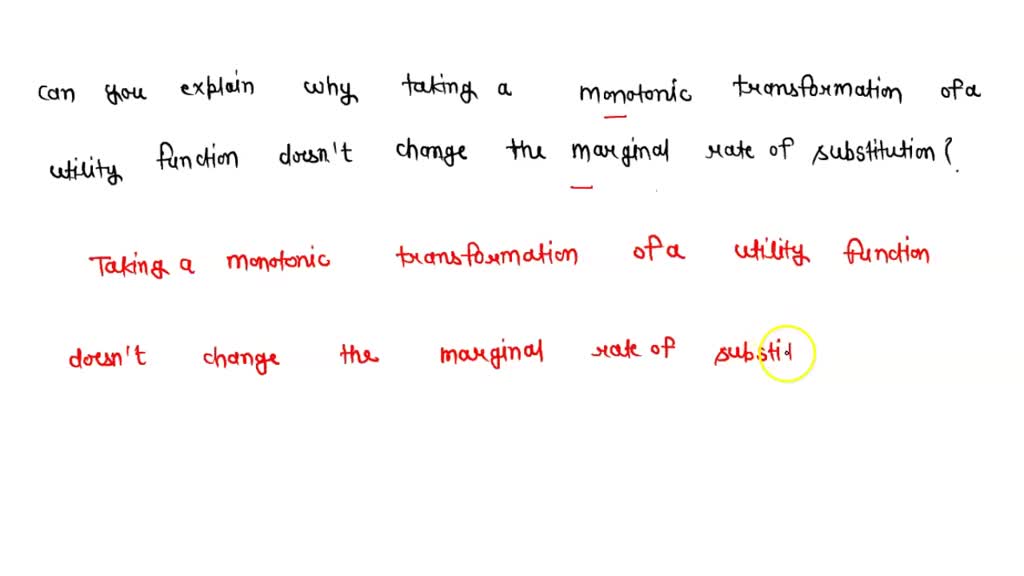 can you explain why taking a monotonic transformation of a
utility function doesn't change the marginal rate of substitution?
Taking a monotonic transformation of a utility function
doesn't change the marginal rate of substi